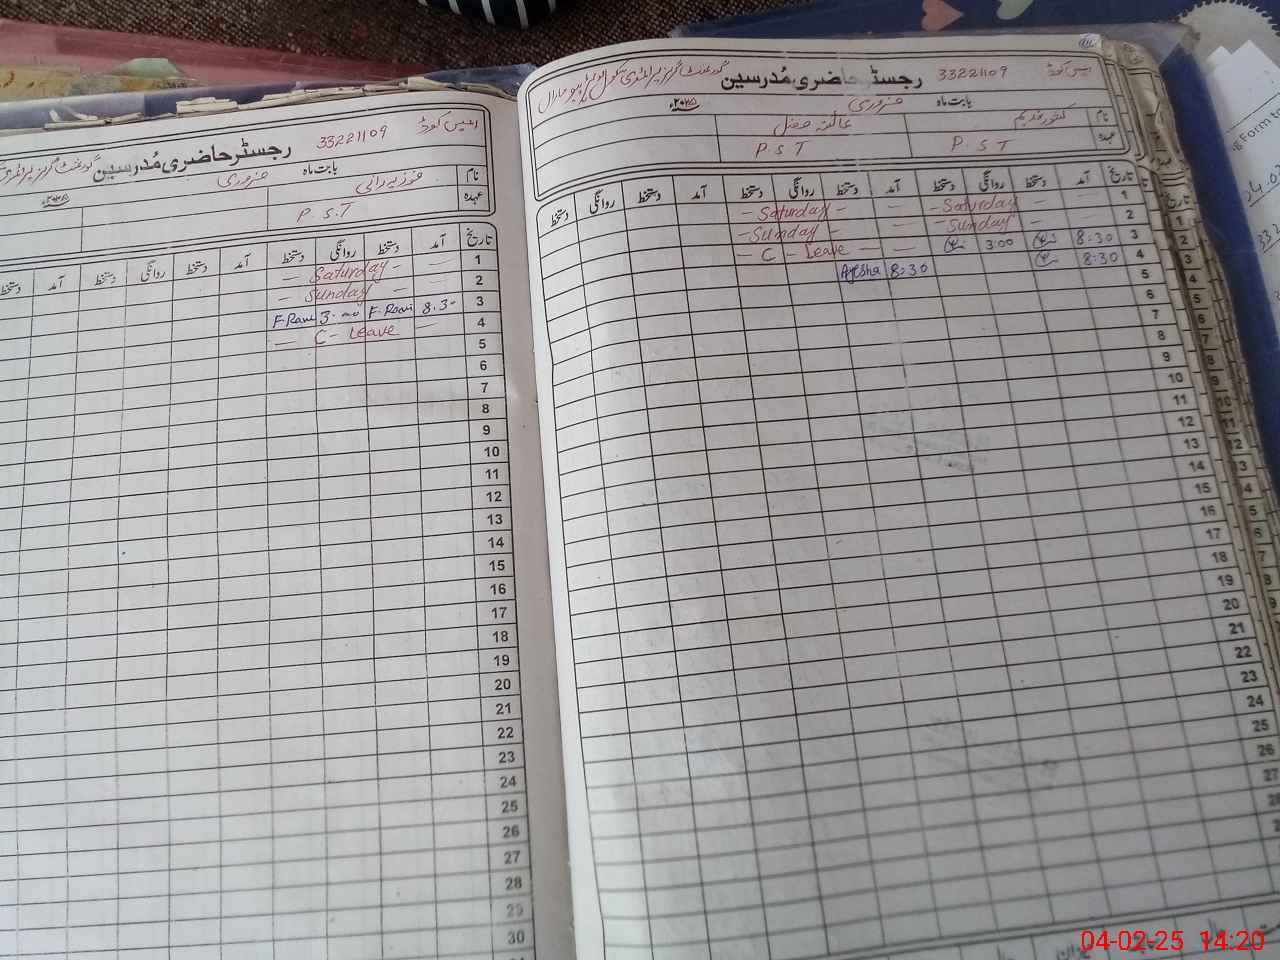 رجسٹر حاضری مُدرسین 33221109 ایمس کوڈ
بابت ماہ فروری ۲۰۲۵ء
نام کشور نسیم عائشہ فضل
عہدہ P.S.T P.S.T
تاریخ آمد دستخط روانگی دستخط آمد دستخط روانگی دستخط آمد دستخط روانگی دستخط
1 — Saturday — — Saturday —
2 — Sunday — — Sunday —
3 8:30 3:00 — C - Leave —
4 8:30 8:30 Ayesha
5
6
7
8
9
10
11
12
13
14
15
16
17
18
19
20
21
22
23
24
25
26
27
رجسٹر حاضری مُدرسین 33221109 ایمس کوڈ
بابت ماہ فروری ۲۰۲۵ء
نام فوزیہ رانی
عہدہ P.S.T
تاریخ آمد دستخط روانگی دستخط آمد دستخط روانگی دستخط آمد دستخط
1 — Saturday —
2 — Sunday —
3 8:30 F.Rani 3:00 F.Rani
4 — C - Leave —
5
6
7
8
9
10
11
12
13
14
15
16
17
18
19
20
21
22
23
24
25
26
27
28
29
30
04-02-25 14:20